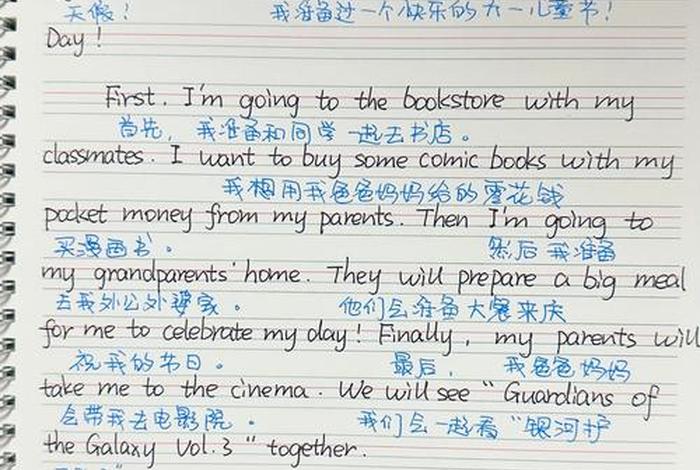 天假！ 我准备过一个快乐的六一儿童节！
Day !
First. I'm going to the bookstore with my
首先，我准备和同学一起去书店。
classmates. I want to buy some comic books with my
我想用我爸爸妈妈给的零花钱
pocket money from my parents. Then I'm going to
买漫画书。 然后我准备
my grandparents' home. They will prepare a big meal
去我外公外婆家。 他们会准备大餐来庆
for me to celebrate my day! Finally, my parents will
祝我的节日。 最后， 我爸爸妈妈
take me to the cinema. We will see "Guardians of
会带我去电影院。 我们会一起看"银河护
the Galaxy Vol.3" together.